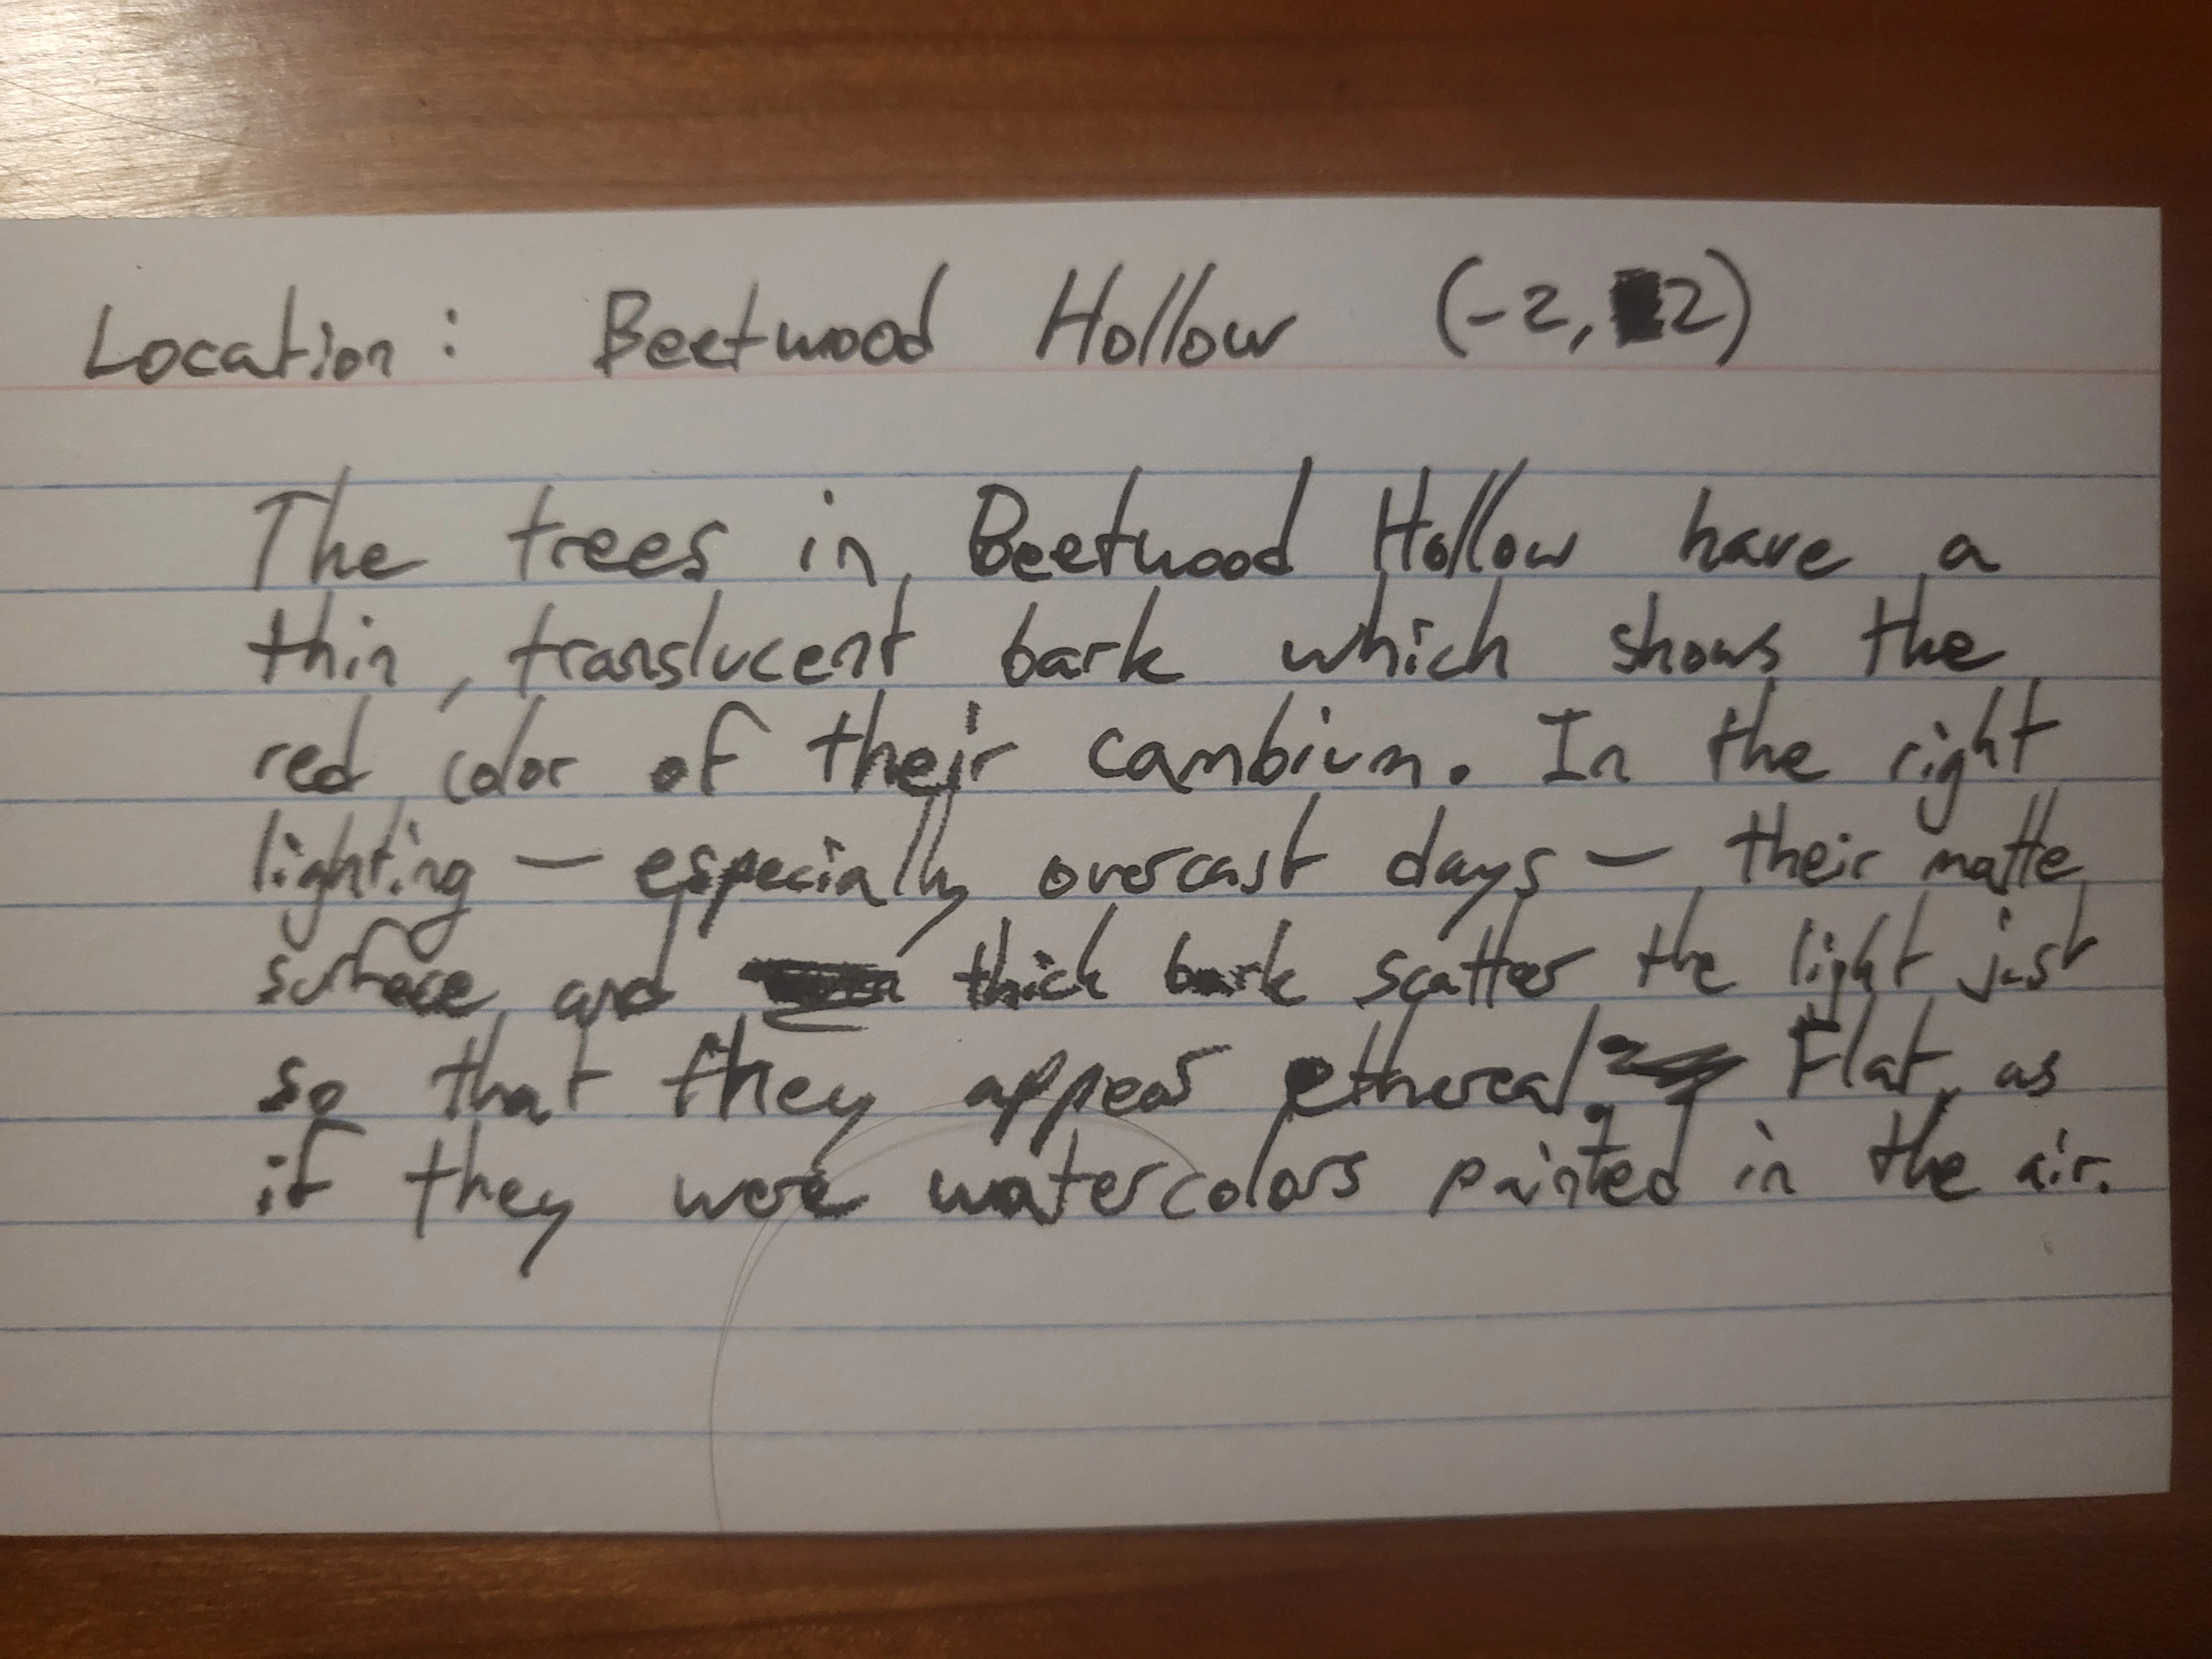 Location: Beetwood Hollow (-2, 2)
The trees in Beetwood Hollow have a
thin, translucent bark which shows the
red color of their cambium. In the right
lighting — especially overcast days — their matte
surface and thick bark scatter the light just
so that they appear ethereal. Flat, as
if they were watercolors painted in the air.